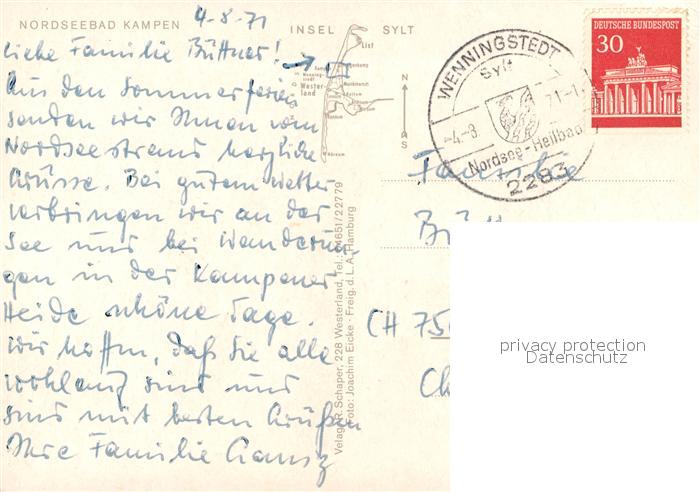 NORDSEEBAD KAMPEN
INSEL SYLT
4-8-71
Liebe Familie Büttner!
Aus den Sommerferien
senden wir Ihnen vom
Nordseestrand herzliche
Grüsse. Bei gutem Wetter
verbringen wir an der
See und bei Wanderun-
gen in der Kampener
Heide schöne Tage.
Wir hoffen, daß Sie alle
wohlauf sind und
sind mit besten Grüßen
Ihre Familie
List
Westerland
N
S
Verlag R. Schaper, 228 Westerland, Tel.: 04651/22779
Foto: Joachim Eicke · Freig. d. L.A. Hamburg
WENNINGSTEDT
Sylt
-4.-8. 71-1
Nordsee-Heilbad
2283
DEUTSCHE BUNDESPOST
30
Familie
Bü
CH 75
Ch
privacy protection
Datenschutz